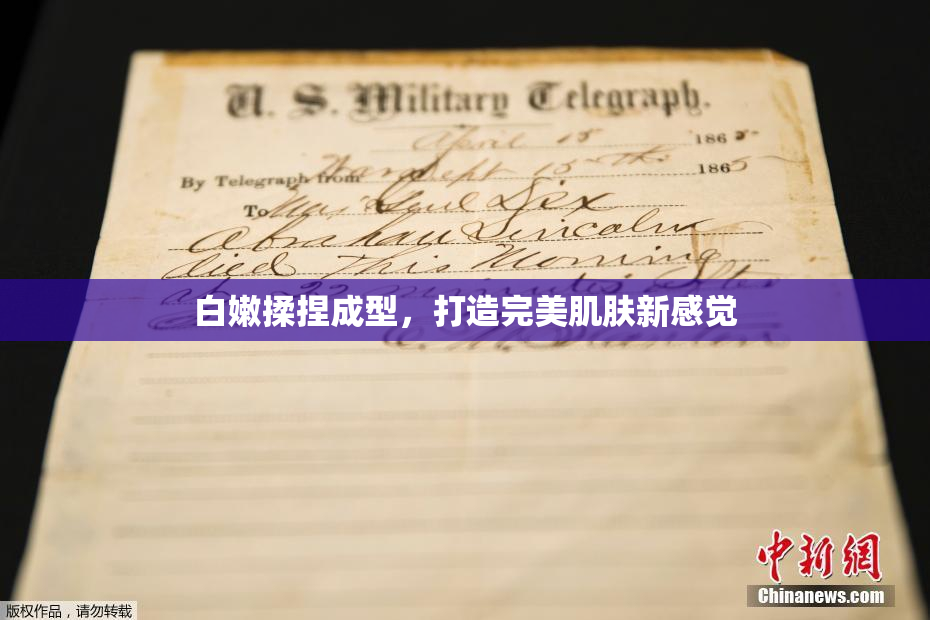 U. S. Military Telegraph.
April 15 1865
By Telegraph from War Dept 15th 1865
To Maj Genl Dix
Abraham Lincoln
died This Morning
at 22 minutes after
白嫩揉捏成型，打造完美肌肤新感觉
E. M. Stanton
中新網
Chinanews.com
版权作品，请勿转载